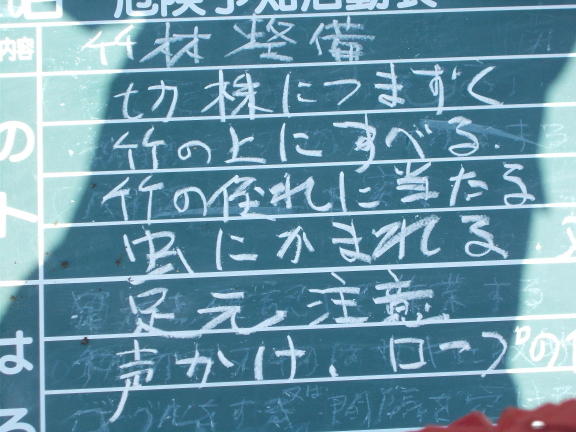 危険予知活動表
内容 竹材整備
切株につまずく
の 竹の上にすべる.
ト 竹の倒れに当たる
虫にかまれる
足元注意
は 声かけ、ロープの
る